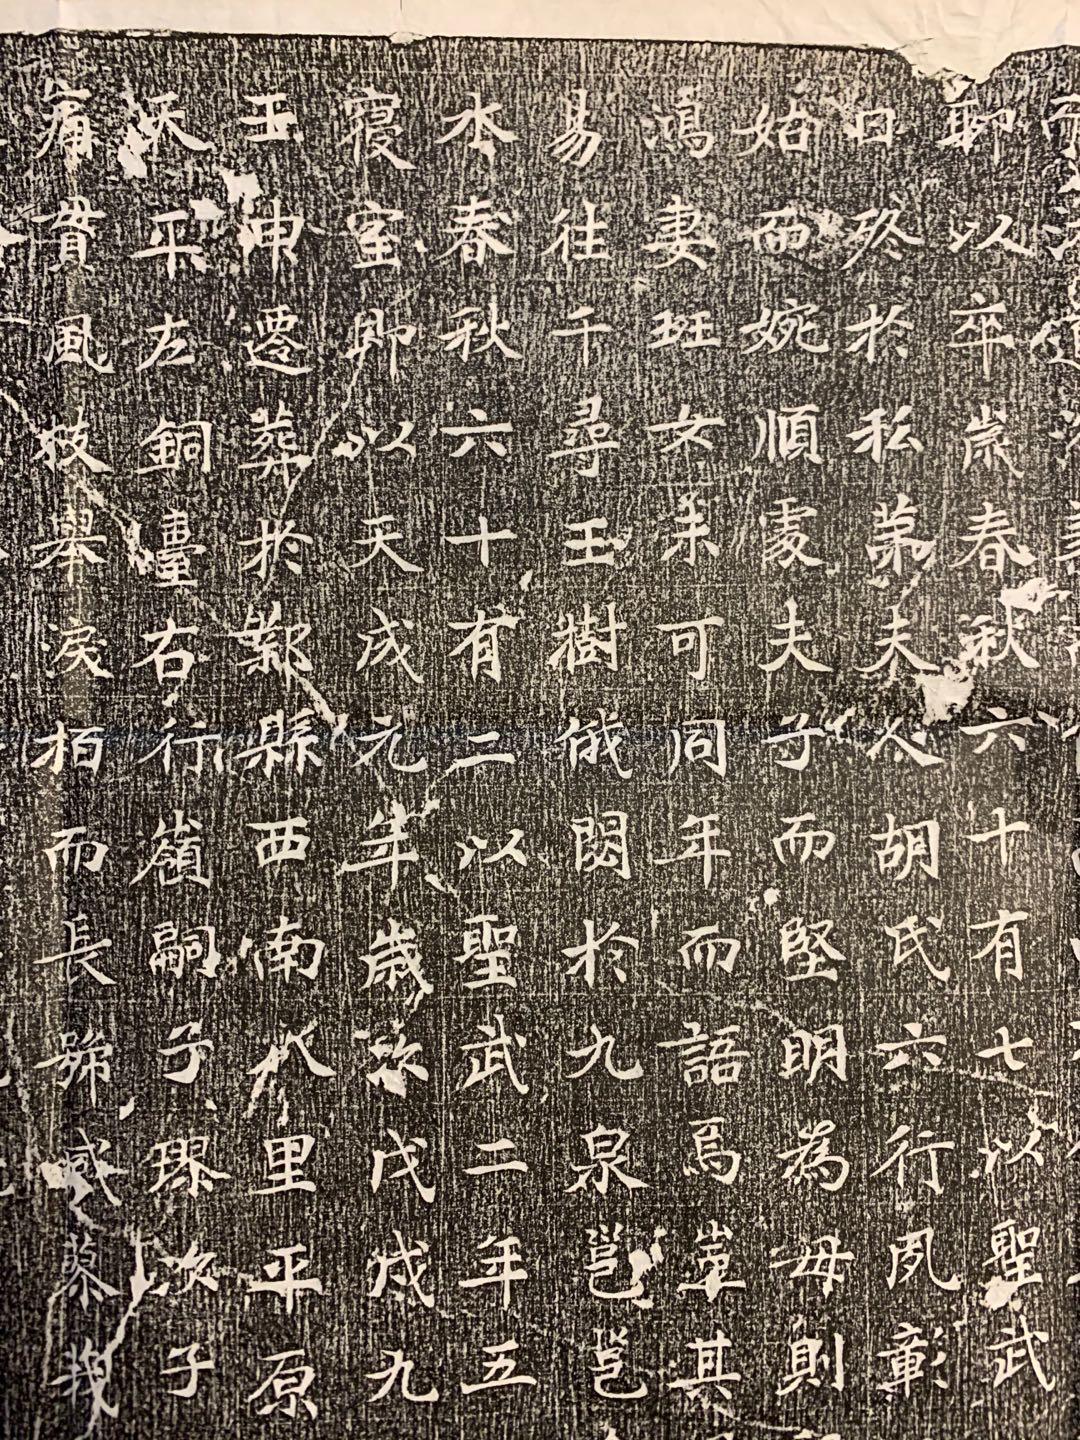 耶以卒歲春秋六十有七以聖武
日终於私苐夫人胡氏六行夙彰
姑面婉順處夫子而堅明為毋則
鴻妻班女未可同年而語焉豈其
易往千尋玉樹俄閟於九泉邕邕
本春秋六十有二以聖武二年五
寝室即以天成元年歳次戊戌九
玉申遷葬於鄴縣西南八里平原
沃平左銅臺右行嶺嗣子璆次子
痛貫風枝舉淚栢而長号感蓼莪